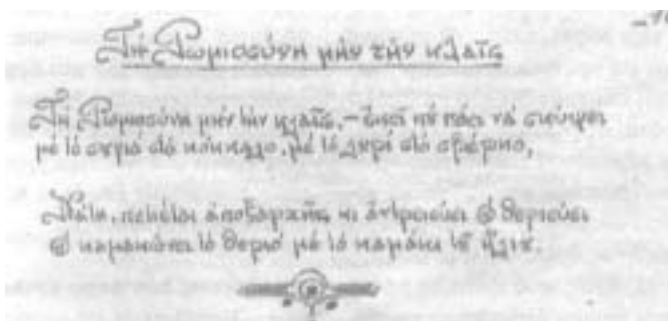 Τὴ Ρωμιοσύνη μὴν τὴν κλαῖς
Τὴ Ρωμιοσύνη μὴν τὴν κλαῖς, – ἐκεῖ ποὺ πάει νὰ σκύψει
μὲ τὸ σουγιὰ στὸ κόκκαλο, μὲ τὸ λουρὶ στὸ σβέρκο,
Νάτη, πετιέται ἀποξαρχῆς κι ἀντρειεύει & θεριεύει
& καμακώνει τὸ θεριὸ μὲ τὸ καμάκι τοῦ ἥλιου.